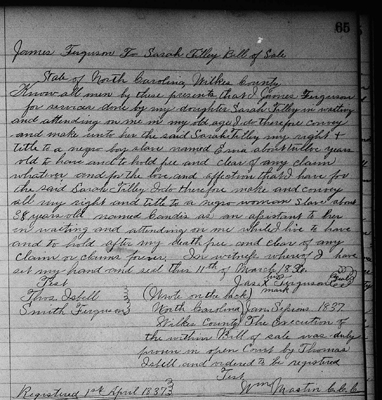 65
James Ferguson To Sarah Tilley Bill of Sale
State of North Carolina Wilkes County
Know all men by these presents that I James Ferguson
for services done by my daughter Sarah Tilley in waiting
and attending on me in my old age I do therefore convey
and make unto her the said Sarah Tilley my right &
title to a negro boy slave named about twelve year
old to have and to hold free and clear of any claim
whatever and for the love and affection that I have for
the said Sarah Tilley I do therefore make and convey
all my right and title to a negro woman Slave about
38 years old named Candis as an to her
in waiting and attending on me while I live to have
and to hold after my death free and clear of any
Claim or claims forever. In witness whereof I have
set my hand and seal this 11th of March 1836.
Test James X Ferguson (Seal)
Thos Isbell (Wrote on the back) mark
Smith Ferguson North Carolina Jan Sessions 1837.
Wilkes County The Execution of
the within Bill of sale was duly
proven in open Court by Thomas
Isbell and ordered to be registered
Test
Registered 1st April 1837 Wm Mastin C.C.C.